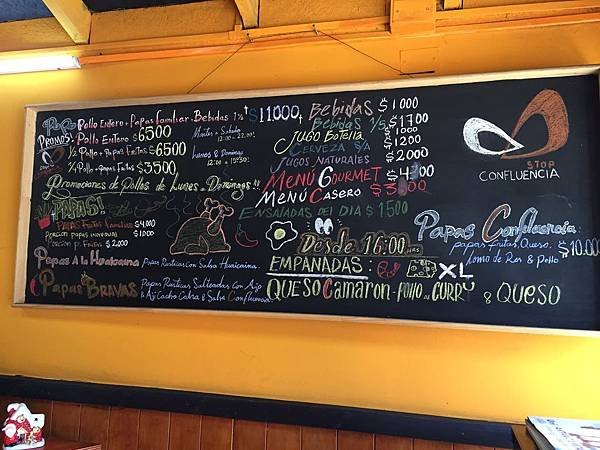 Pollo Entero + Papas familiar + Bebidas 1½ $ 11000
PROMOS!
Pollo Entero $6500
½ Pollo + Papas Fritas $6500
¼ Pollo + Papas Fritas $3500
Martes a Sabado
12:00 - 22:00
Lunes & Domingo
12:00 - 19:30
Promociones de Pollos de Lunes a Domingos!!
PAPAS!
Papas Fritas familiar $4.000
Porcion papas individual $1.000
Porcion p. Fritas $2.000
Papas A la Huancaina Papas Rusticas con Salsa Huancaina.
Papas Bravas Papas Rusticas Salteadas con Ajo
& Aji Cacho Cabra & Salsa Confluencia
Bebidas $1000
Bebidas 1/5 $1700
Jugo Botella $1000
Cerveza S/A $1200
Jugos Naturales $2000
Menú Gourmet
Menú Casero
Ensaladas del Dia $1500
Desde 16:00 HRS
EMPANADAS: XL
QUESO Camaron - Pollo al CURRY & QUESO
STOP
CONFLUENCIA
Papas Confluencia
Papas Fritas, Queso, $10.000
Lomo de Res & Pollo